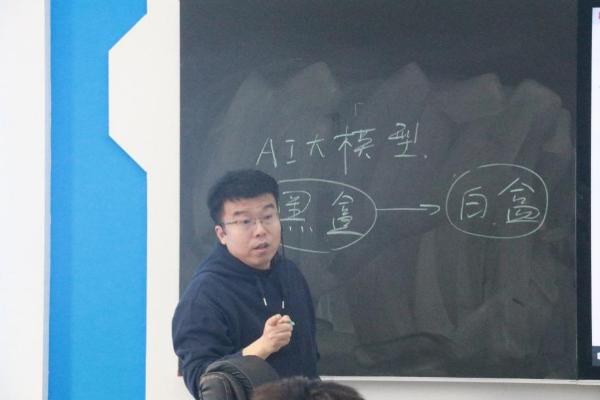 AI大模型
黑盒 → 白盒